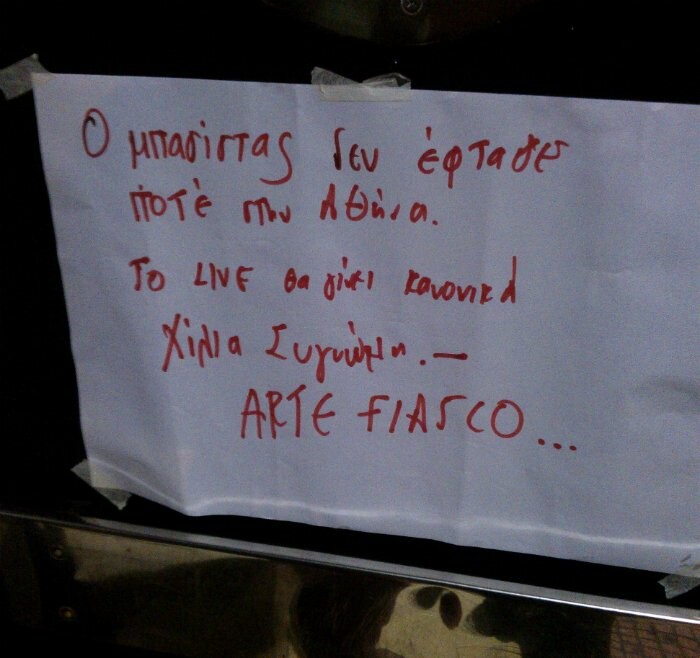 Ο μπασίστας δεν έφτασε
ποτέ στην Αθήνα.
Το LIVE θα γίνει κανονικά
Χίλια Συγνώμη.—
ARTE FIASCO...